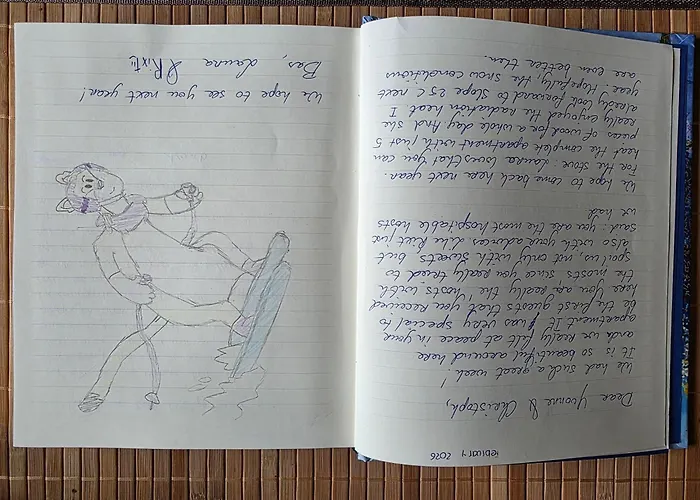 February 2026
Dear Yvonne & Christoph,
We had such a great week!
It is so beautiful around here
and we really felt at peace in your
apartment. It was very special to
be the first guests that you received
here. You are really 'the hosts with
the mosts' since you really tried to
spoil us, not only with sweets, but
also with your like just
said: you are the most hospitable hosts
we had.
We hope to come back here next year.
For the stove: Laura loves that you can
heat the complete apartment with just 5
pieces of wood for a whole day. And she
really enjoyed the radiation heat. I
already look forward to slope 25C next
year. Hopefully, the snow conditions
are even better then.
We hope to see you next year!
Bas, Laura &